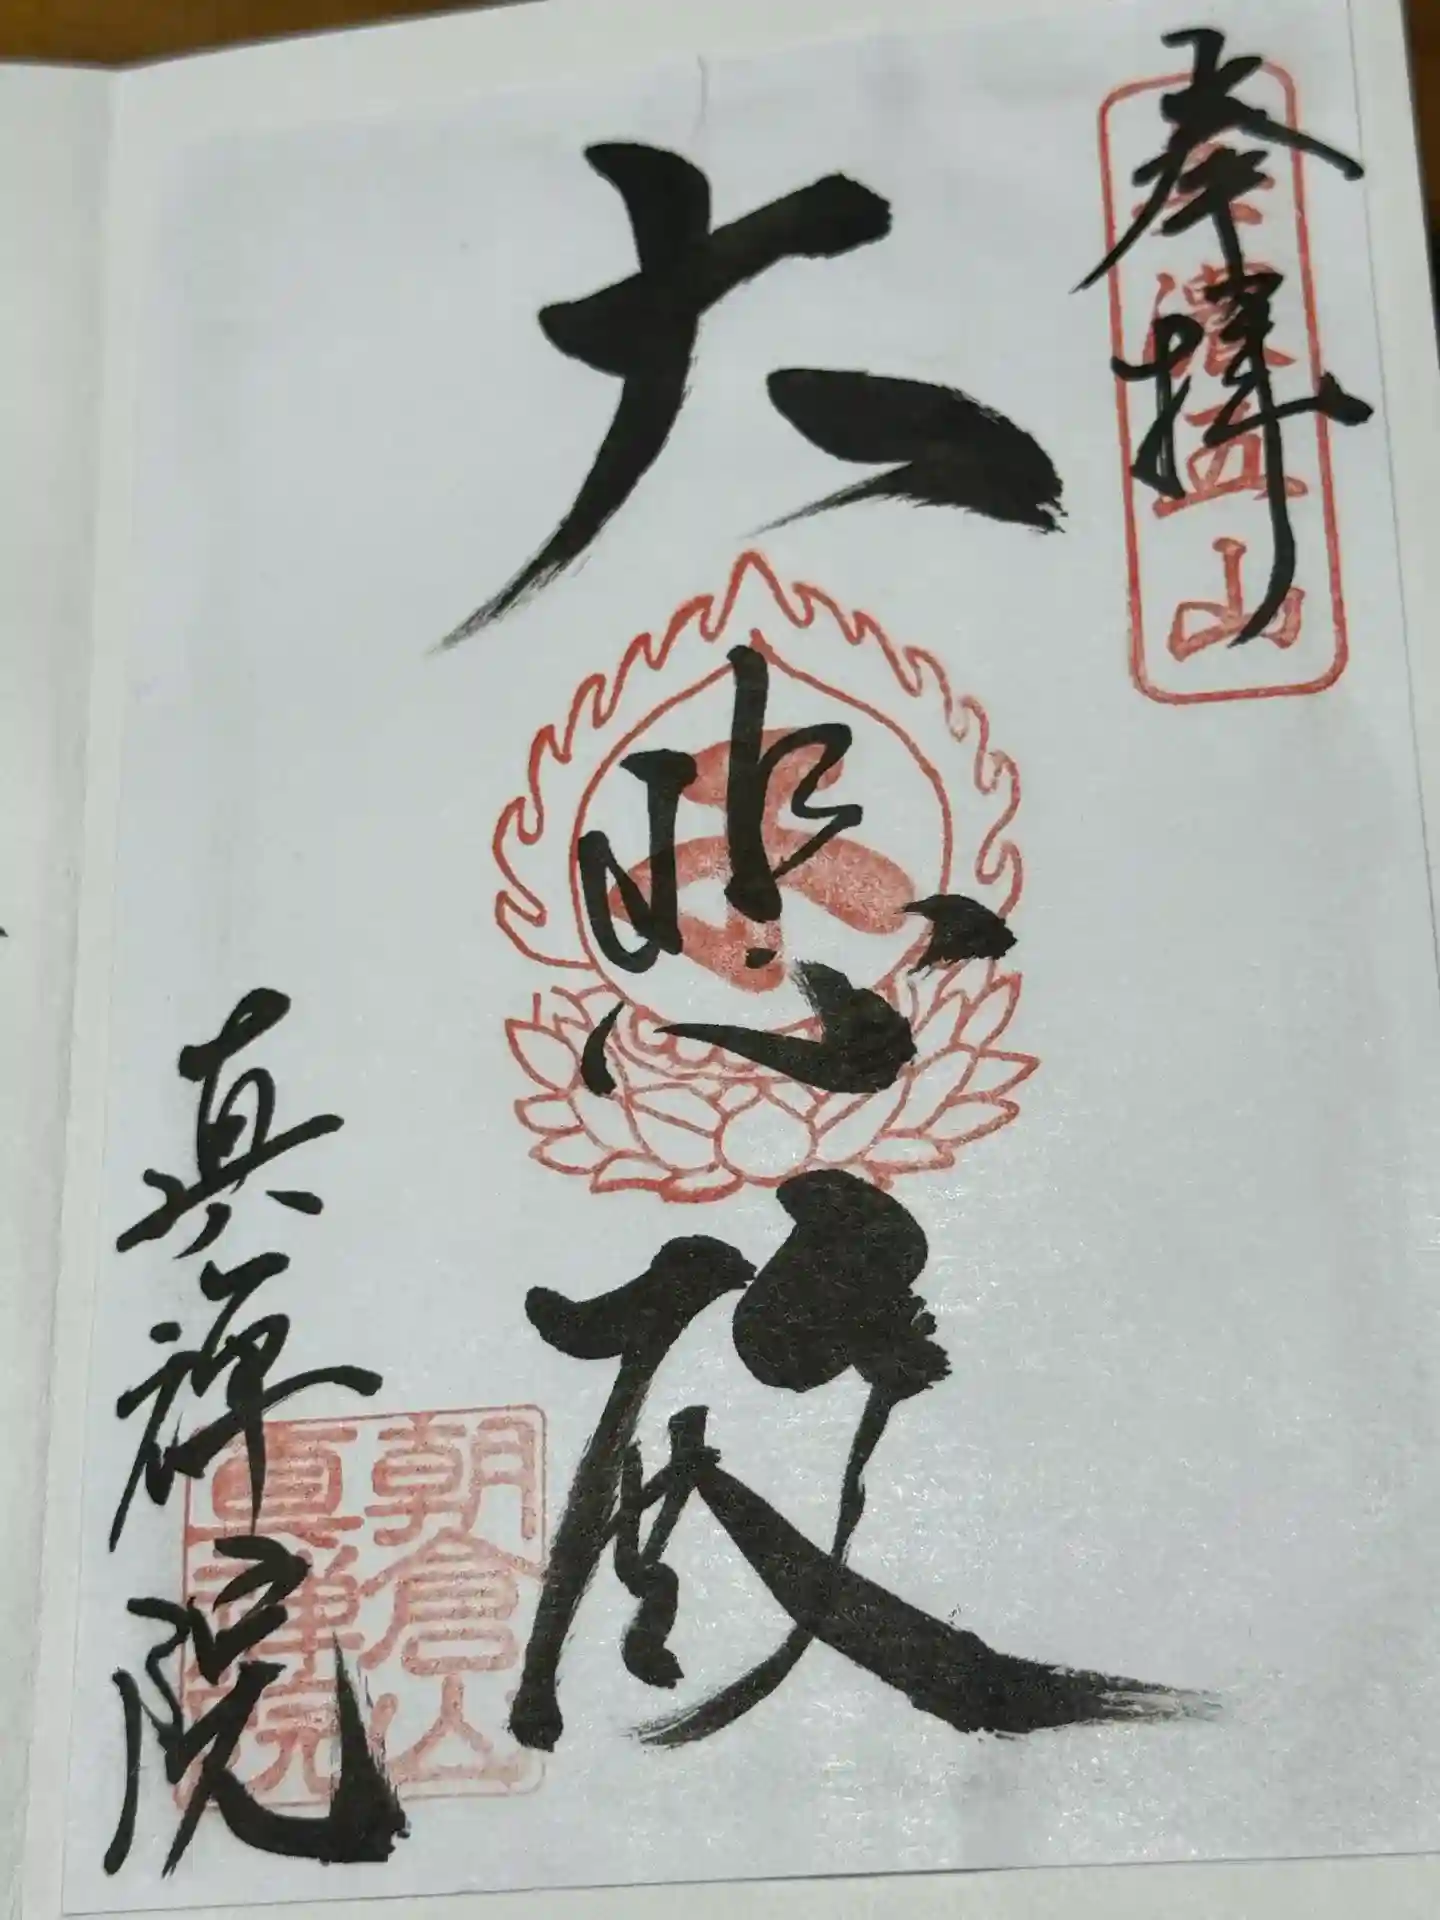 奉拝
美濃五山
大悲殿
真禅院
朝倉山
真禅院